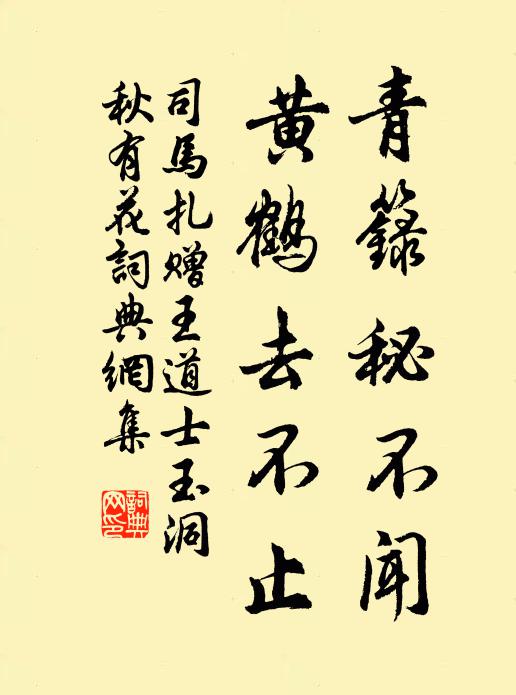 青籙秘不聞
黃鶴去不止
司馬扎贈王道士玉洞
秋有花詞典網集
詞典
网印